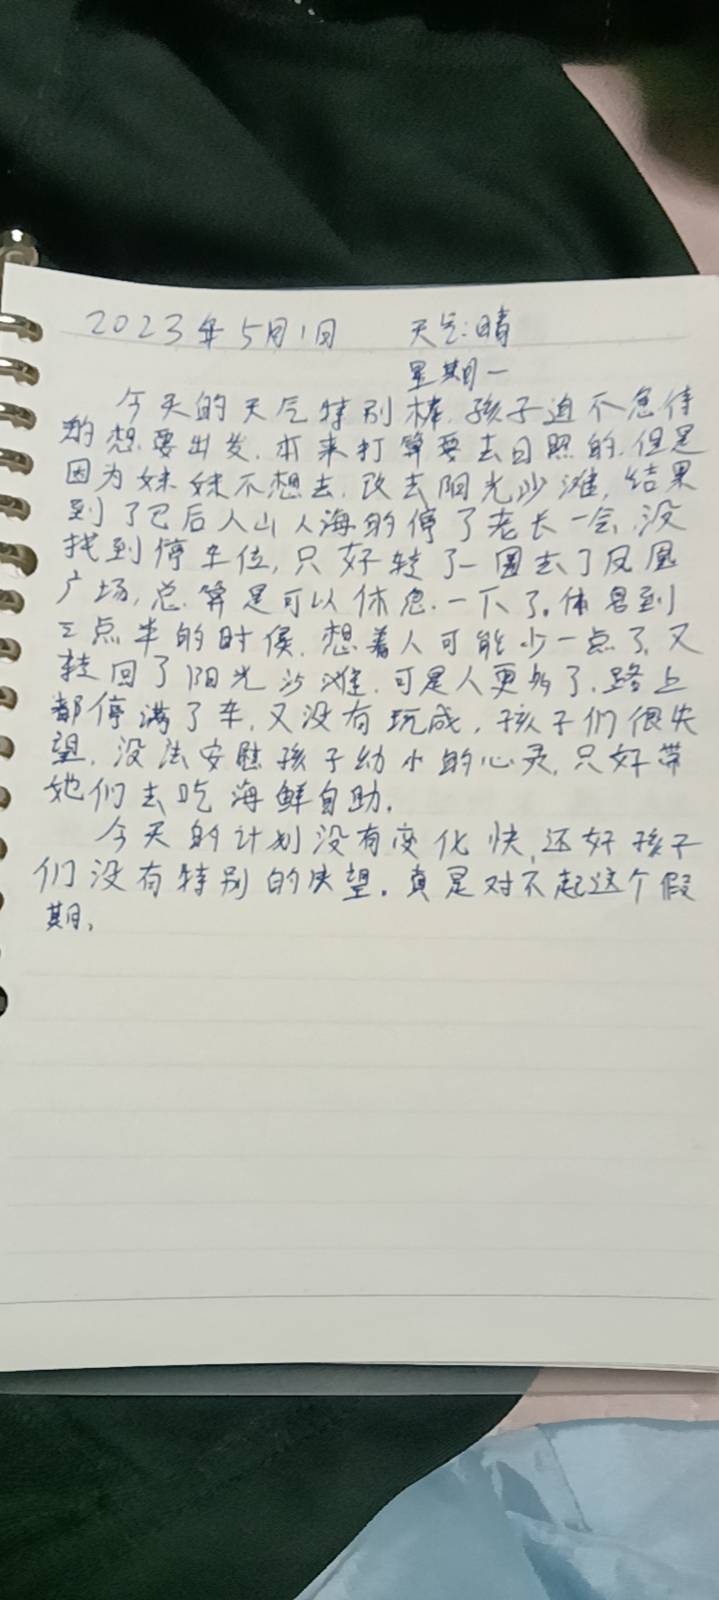 2023年5月1日 天气:晴
星期一
今天的天气特别棒,孩子迫不急待
的想要出发,本来打算要去日照的,但是
因为妹妹不想去,改去阳光沙滩,结果
到了已后人山人海的停了老长一会,没
找到停车位,只好转了一圈去了凤凰
广场,总算是可以休息一下了。休息到
三点半的时候,想着人可能少一点了,又
转回了阳光沙滩,可是人更多了,路上
都停满了车,又没有玩成,孩子们很失
望,没法安慰孩子幼小的心灵,只好带
她们去吃海鲜自助。
今天的计划没有变化快,还好孩子
们没有特别的失望。真是对不起这个假
期。